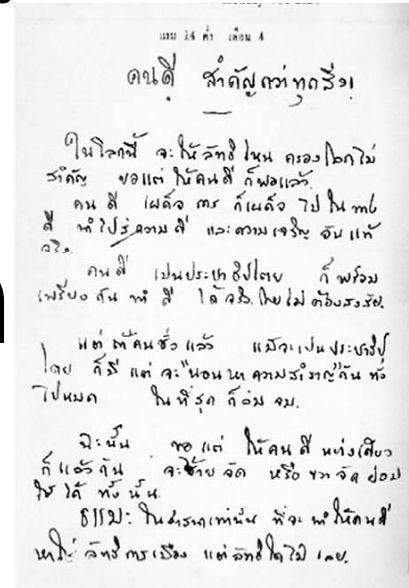 แรม 14 ค่ำ เดือน 4
คนดี สำคัญกว่าทุกสิ่ง!
ในโลกนี้ จะให้ลัทธิไหน ครองโลกไม่
สำคัญ ขอแต่ ให้คนดี ก็พอแล้ว.
คน ดี เผด็จ การ ก็เผด็จ ไป ใน ทาง
ดี นำ ไปสู่ ความ ดี และ ความ เจริญ อัน แท้
จริง.
คน ดี เป็นประชาธิปไตย ก็ พร้อม
เพรียง กัน ทำ ดี ได้ จริง โดยไม่ ต้องสงสัย.
แต่ ถ้า คนชั่ว แล้ว แม้จะเป็น ประชาธิป
ไตย ก็มี แต่ จะ "นอน หา ความสำราญ" กัน ทั้ง
ไปหมด ในที่สุด ก็ล่ม จม.
ฉะนั้น ขอ แต่ ให้คน ดี อย่างเดียว
ก็ แล้ว กัน จะซ้าย จัด หรือ ขวา จัด ย่อม
ใช้ ได้ ทั้ง นั้น.
ธรรมะ ในศาสนาเท่านั้น ที่จะ ทำ ให้คนดี
หาใช่ ลัทธิการเมือง แต่ลัทธิใดไม่ เลย.